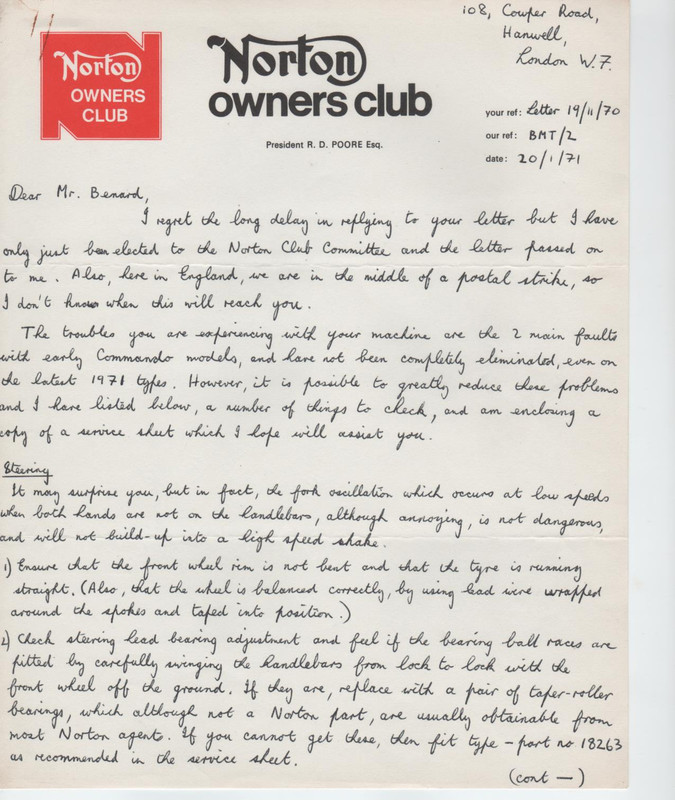 11
108, Cowper Road,
Hanwell,
London W.7.
Norton
OWNERS
CLUB
Norton
owners club
President R. D. POORE Esq.
your ref: Letter 19/11/70
our ref: BMT/2
date: 20/1/71
Dear Mr. Benard,
I regret the long delay in replying to your letter but I have
only just been elected to the Norton Club Committee and the letter passed on
to me. Also, here in England, we are in the middle of a postal strike, so
I don't know when this will reach you.
The troubles you are experiencing with your machine are the 2 main faults
with early Commando models, and have not been completely eliminated, even on
the latest 1971 types. However, it is possible to greatly reduce these problems
and I have listed below, a number of things to check, and am enclosing a
copy of a service sheet which I hope will assist you.
Steering
It may surprise you, but in fact, the fork oscillation which occurs at low speeds
when both hands are not on the handlebars, although annoying, is not dangerous,
and will not build-up into a high speed shake.
1) Ensure that the front wheel rim is not bent and that the tyre is running
straight. (Also, that the wheel is balanced correctly, by using lead wire wrapped
around the spokes and taped into position.)
2) Check steering head bearing adjustment and feel if the bearing ball races are
pitted by carefully swinging the handlebars from lock to lock with the
front wheel off the ground. If they are, replace with a pair of taper-roller
bearings, which although not a Norton part, are usually obtainable from
most Norton agents. If you cannot get these, then fit type - part no 18263
as recommended in the service sheet.
(cont —)